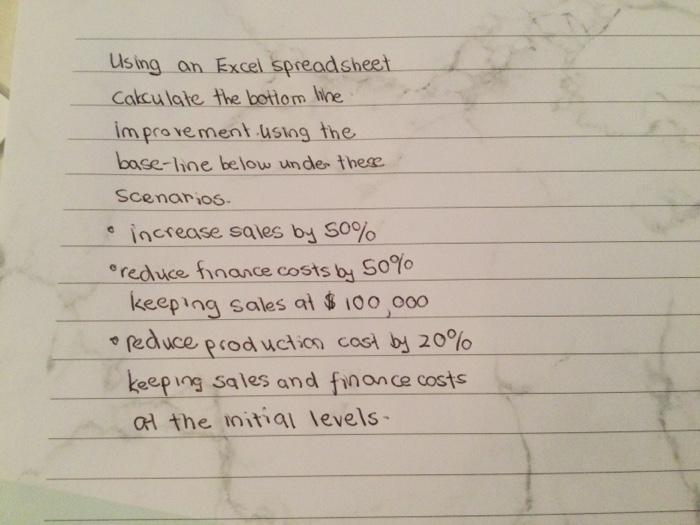 Using an Excel spreadsheet
Calculate the bottom line
improvement using the
base-line below under these
scenarios.
• increase sales by 50%
• reduce finance costs by 50%
keeping sales at $100,000
• reduce production cost by 20%
keeping sales and finance costs
at the initial levels.